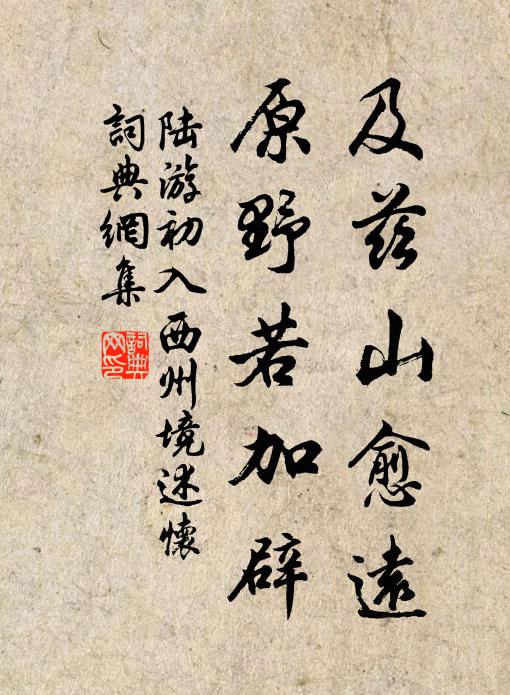 及茲山愈遠
原野若加辟
陸游初入西州境述懷
詞典網集
詞典网印